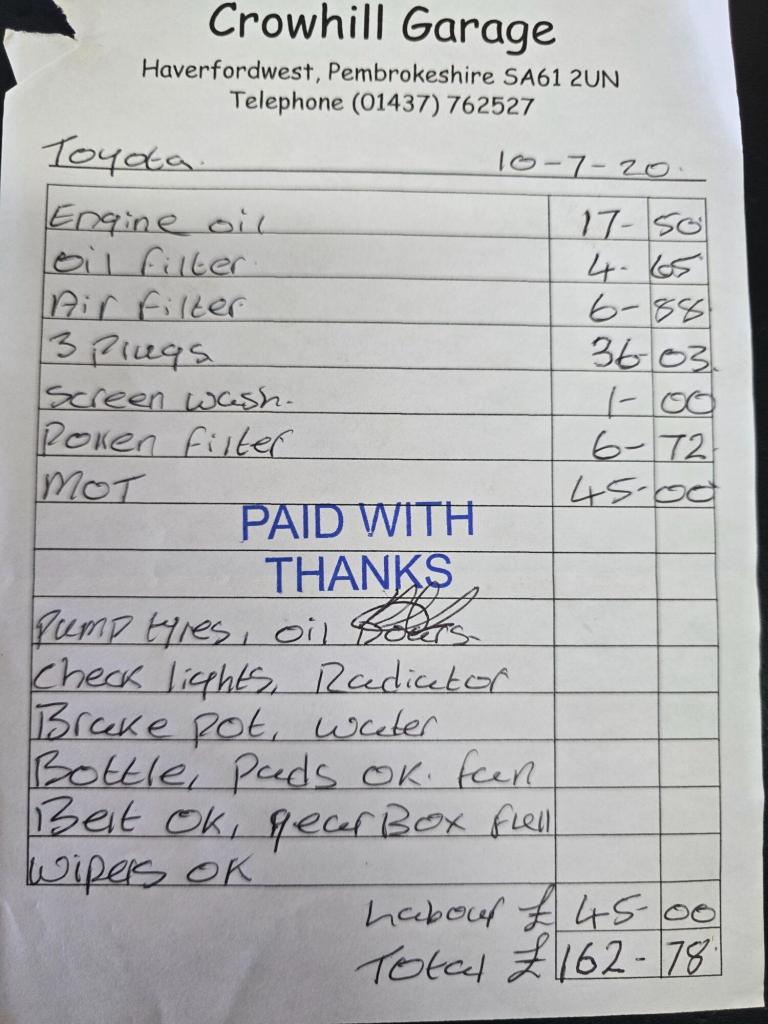 Crowhill Garage
Haverfordwest, Pembrokeshire SA61 2UN
Telephone (01437) 762527
Toyota. 10-7-20.
Engine oil 17- 50
Oil filter 4- 65
Air filter 6- 88
3 Plugs 36- 03
Screen wash. 1- 00
Pollen filter 6- 72
MOT 45- 00
PAID WITH
THANKS
Pump tyres, oil Doors
Check lights, Radiator
Brake pot, water
Bottle, Pads OK. fan
Belt OK, gearBox full
Wipers OK
Labour £ 45- 00
Total £ 162- 78